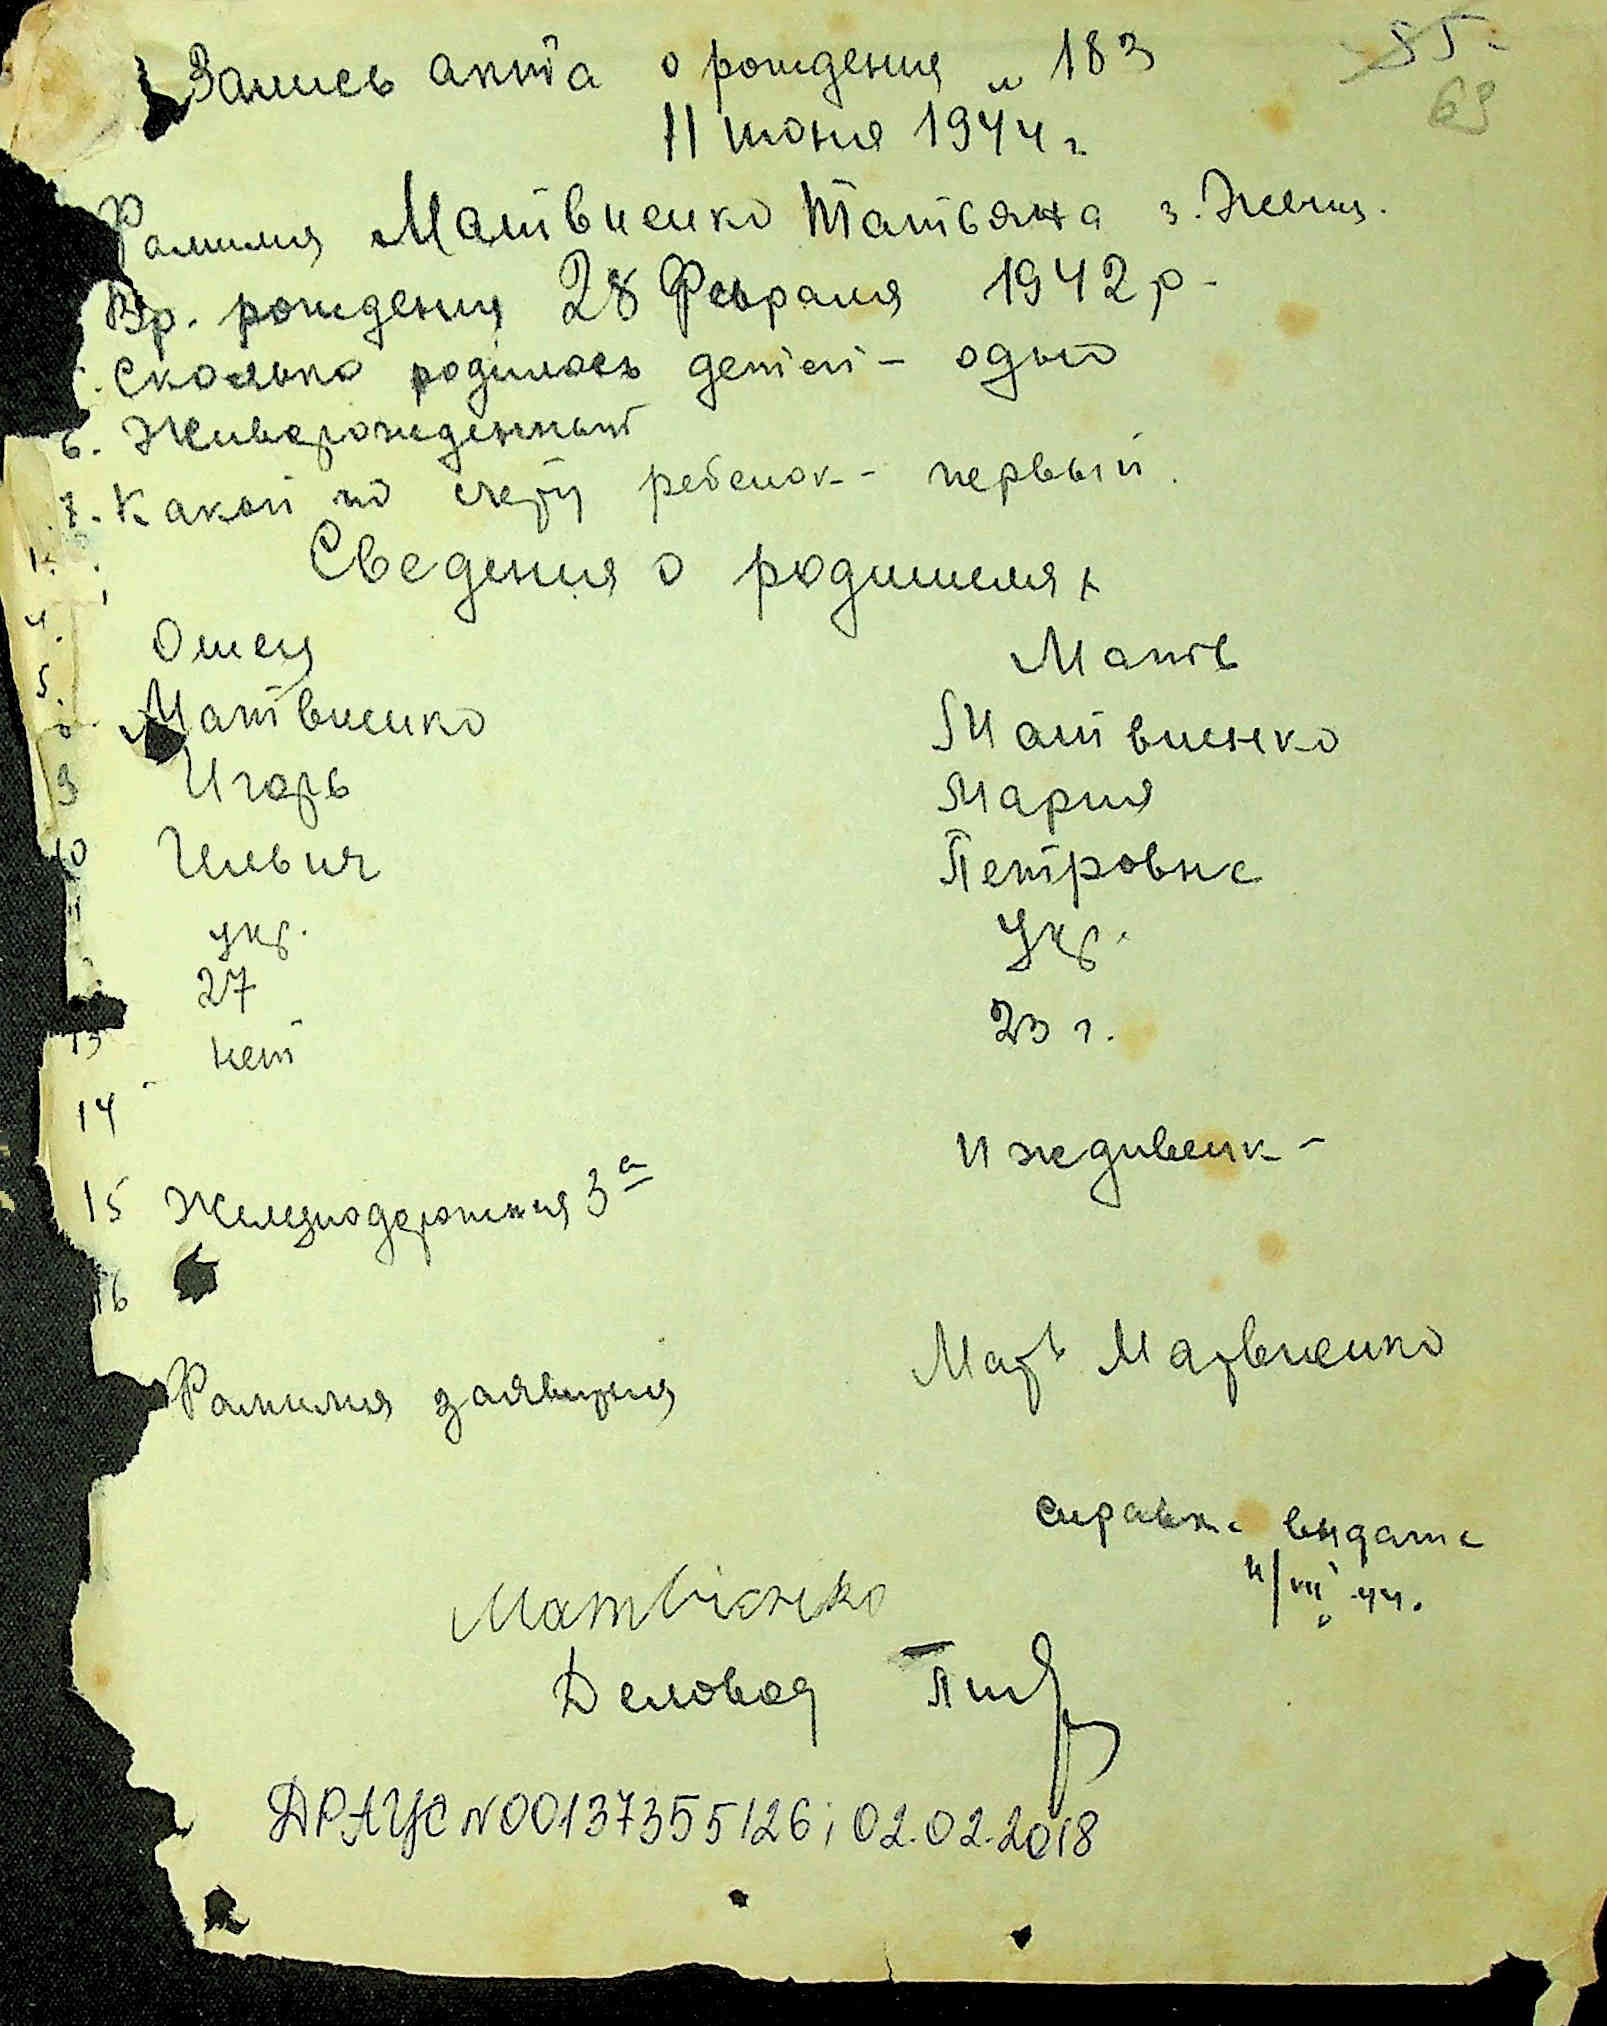 Запись акта о рождения № 183
85
69
11 июня 1944 г.
Фамилия Матвиенко Татьяна 3. Женщ.
Вр. рождения 28 Февраля 1942 р.
Сколько родилось детей - одно
6. Живорожденный
7. Какой по счету ребенок - первый.
Сведения о родителях
4.
Отец Мать
5.
Матвиенко Матвиенко
9 Игорь Мария
10 Ильич Петровна
11 укр. Укр.
27 23 г.
13 нет
14 Иждивенк-
15 Железнодорожная 3а
16
Фамилия заявителя Мать Матвиенко
Справка выдана
11/VII 44.
Матвієнко
Деловод
ДРАЦС №00137355126; 02.02.2018